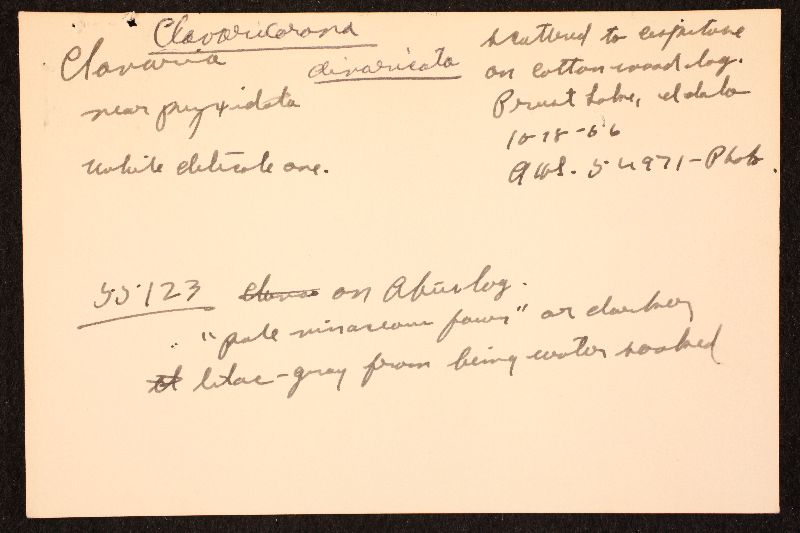 Clavaricorona
divaricata
Clavaria
near pyxidata
White delicate one.
scattered to cespitose
on cottonwood log.
Priest Lake, Idaho
10-18-56
AHS. 54971-Photo.
55123 Clava on Abies log.
"pale vinaceous fawn" or darker
lilac-gray from being water soaked